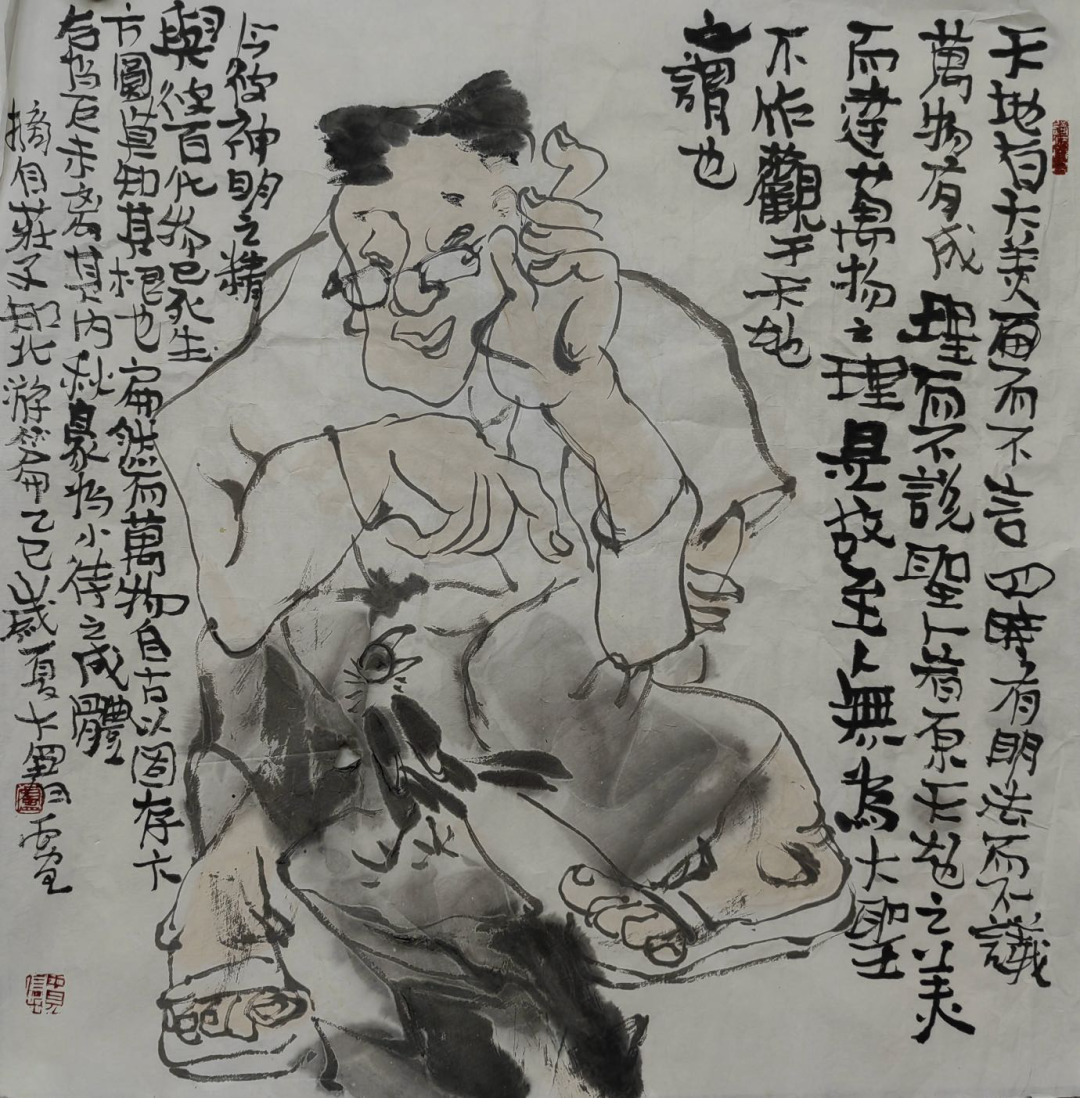 天地有大美而不言四時有明法而不議
萬物有成理而不説聖人者原天地之美
而達萬物之理是故至人無為大聖
不作觀于天地
之謂也
今彼神明之精
與彼百化物已死生
方圓莫知其根也扁然而萬物自古以固存六
合為巨未离其内秋豪為小待之成體
摘自莊子知北游篇乙巳歲夏大